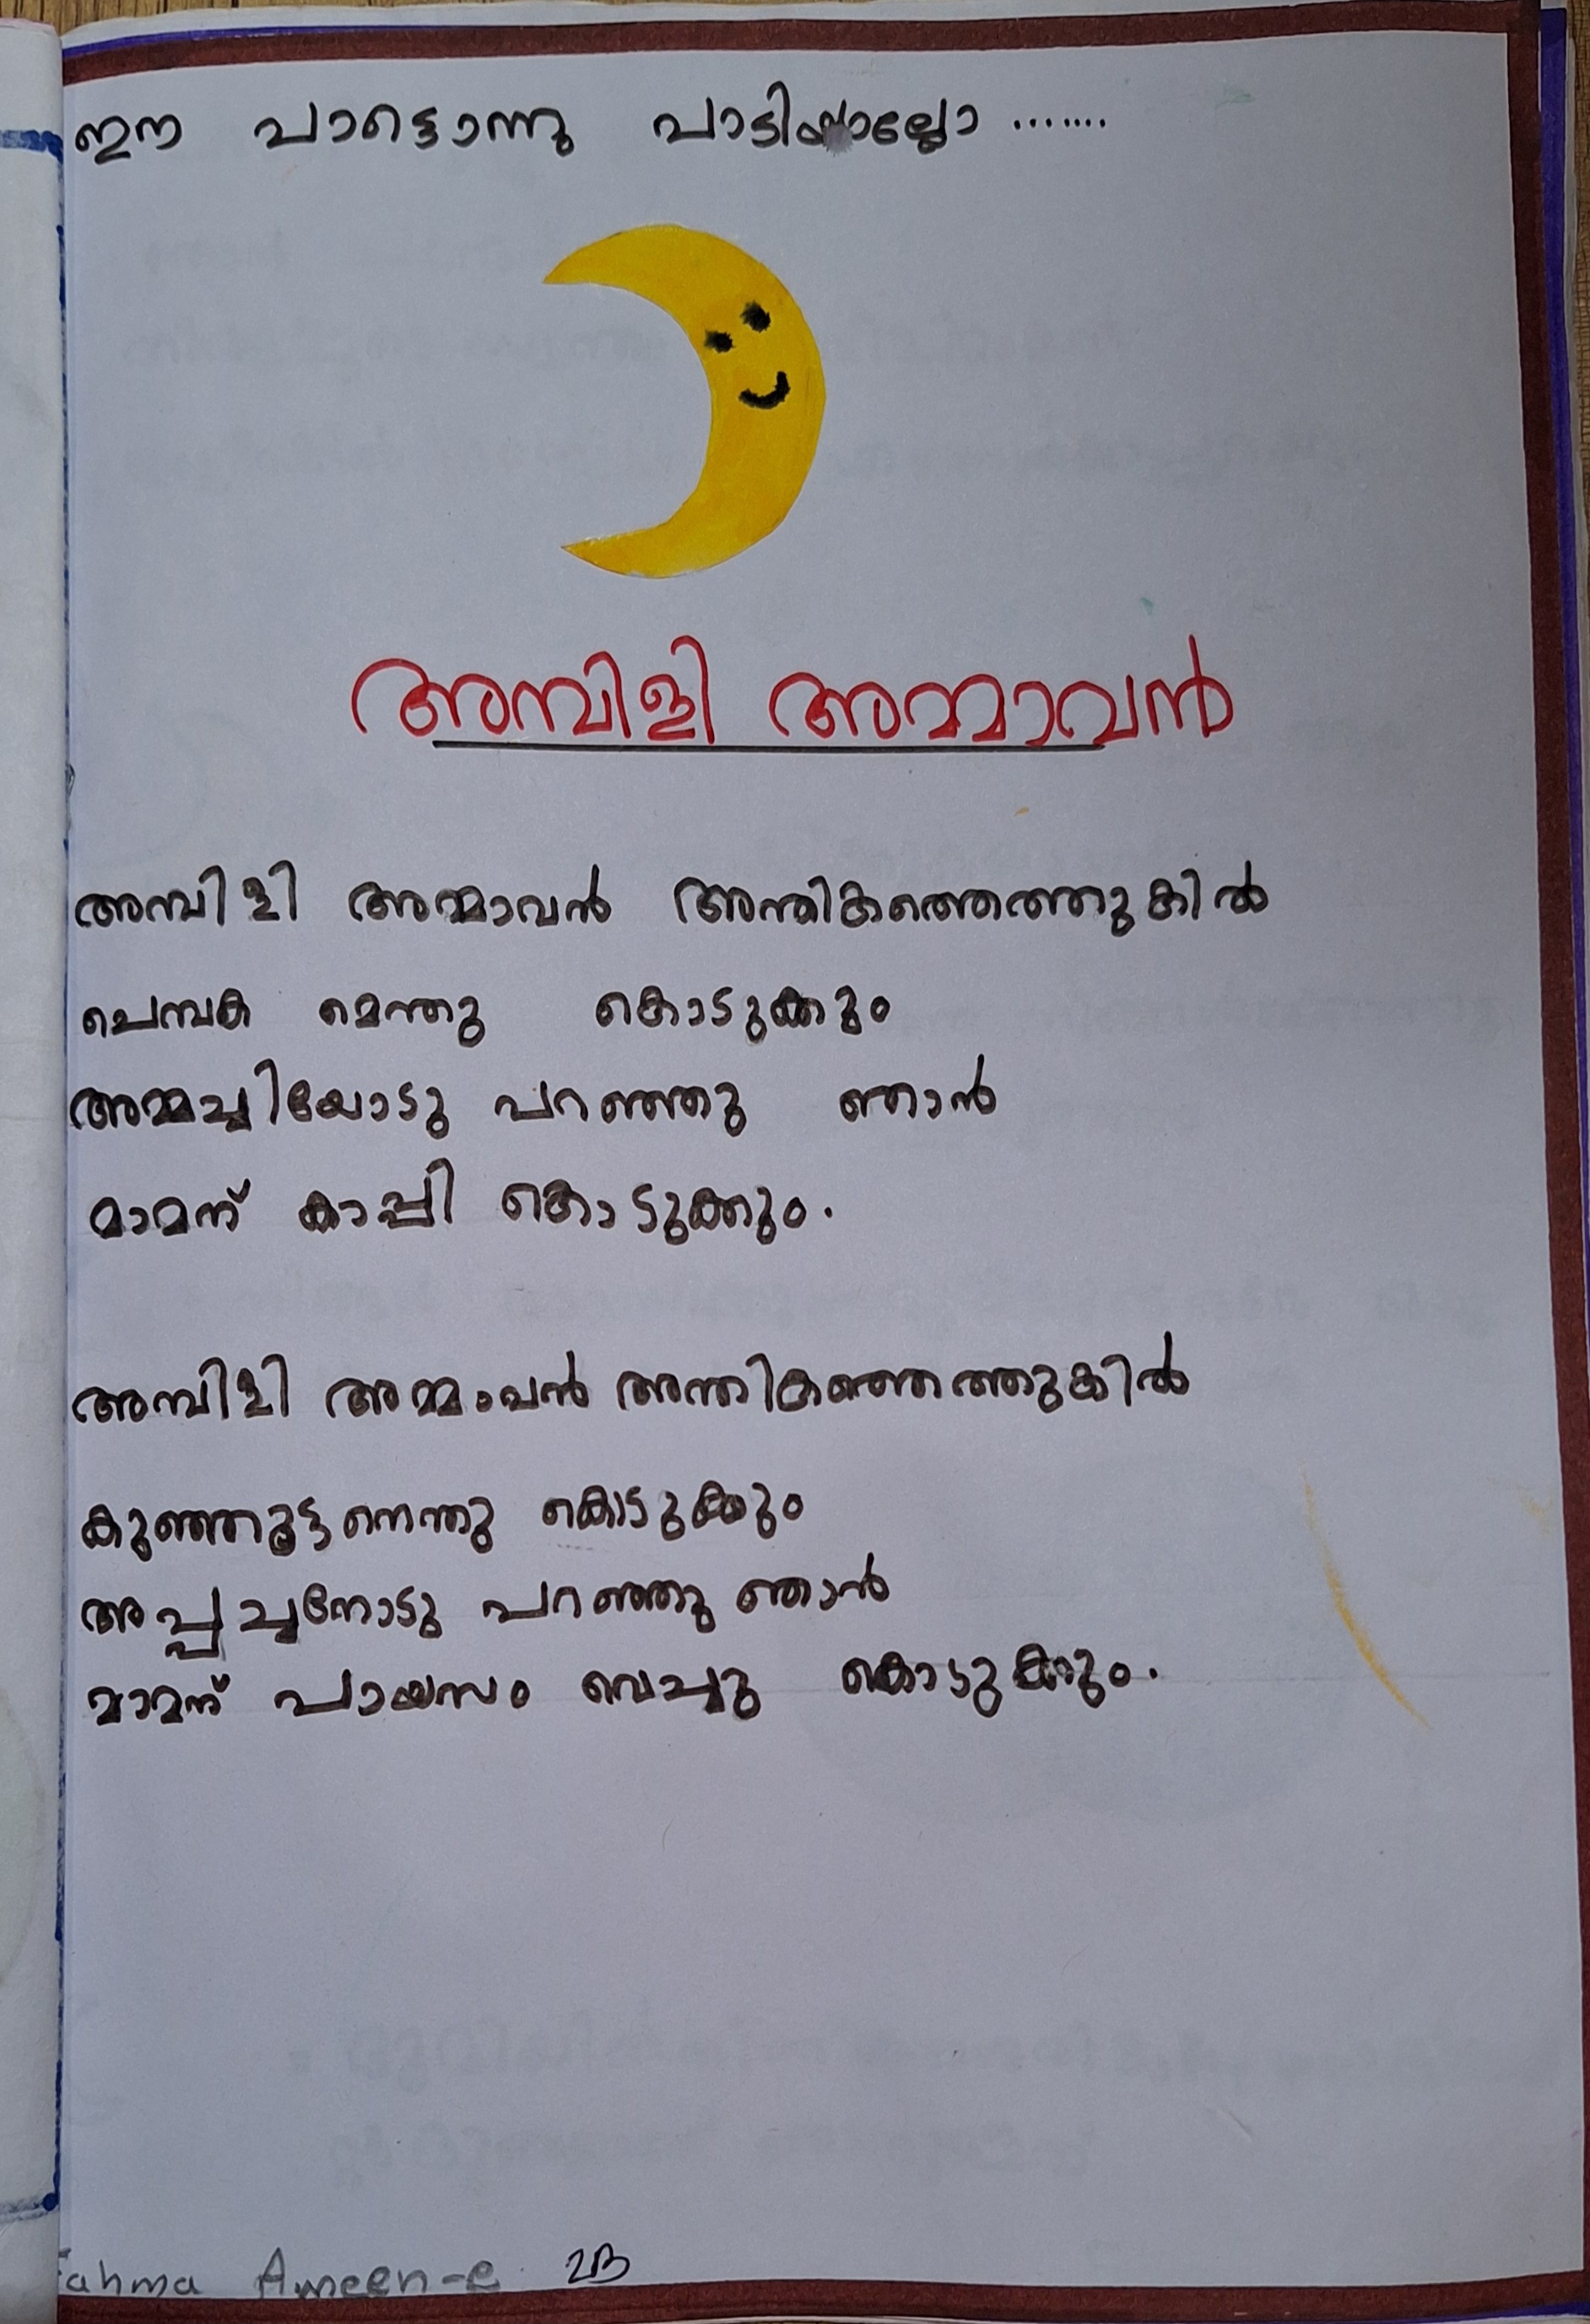 ഈ പാട്ടൊന്നു പാടിയാല്ലോ .......
അമ്പിളി അമ്മാവൻ
അമ്പിളി അമ്മാവൻ അന്തികത്തെത്തുകിൽ
ചെമ്പക മെന്തു കൊടുക്കും
അമ്മച്ചിയോടു പറഞ്ഞു ഞാൻ
മാമന് കാപ്പി കൊടുക്കും.
അമ്പിളി അമ്മാവൻ അന്തികത്തെത്തുകിൽ
കുഞ്ഞൂട്ടനെന്തു കൊടുക്കും
അപ്പച്ചനോടു പറഞ്ഞു ഞാൻ
മാമന് പായസം വെച്ചു കൊടുക്കും.
Fahma Ameen-e 2B